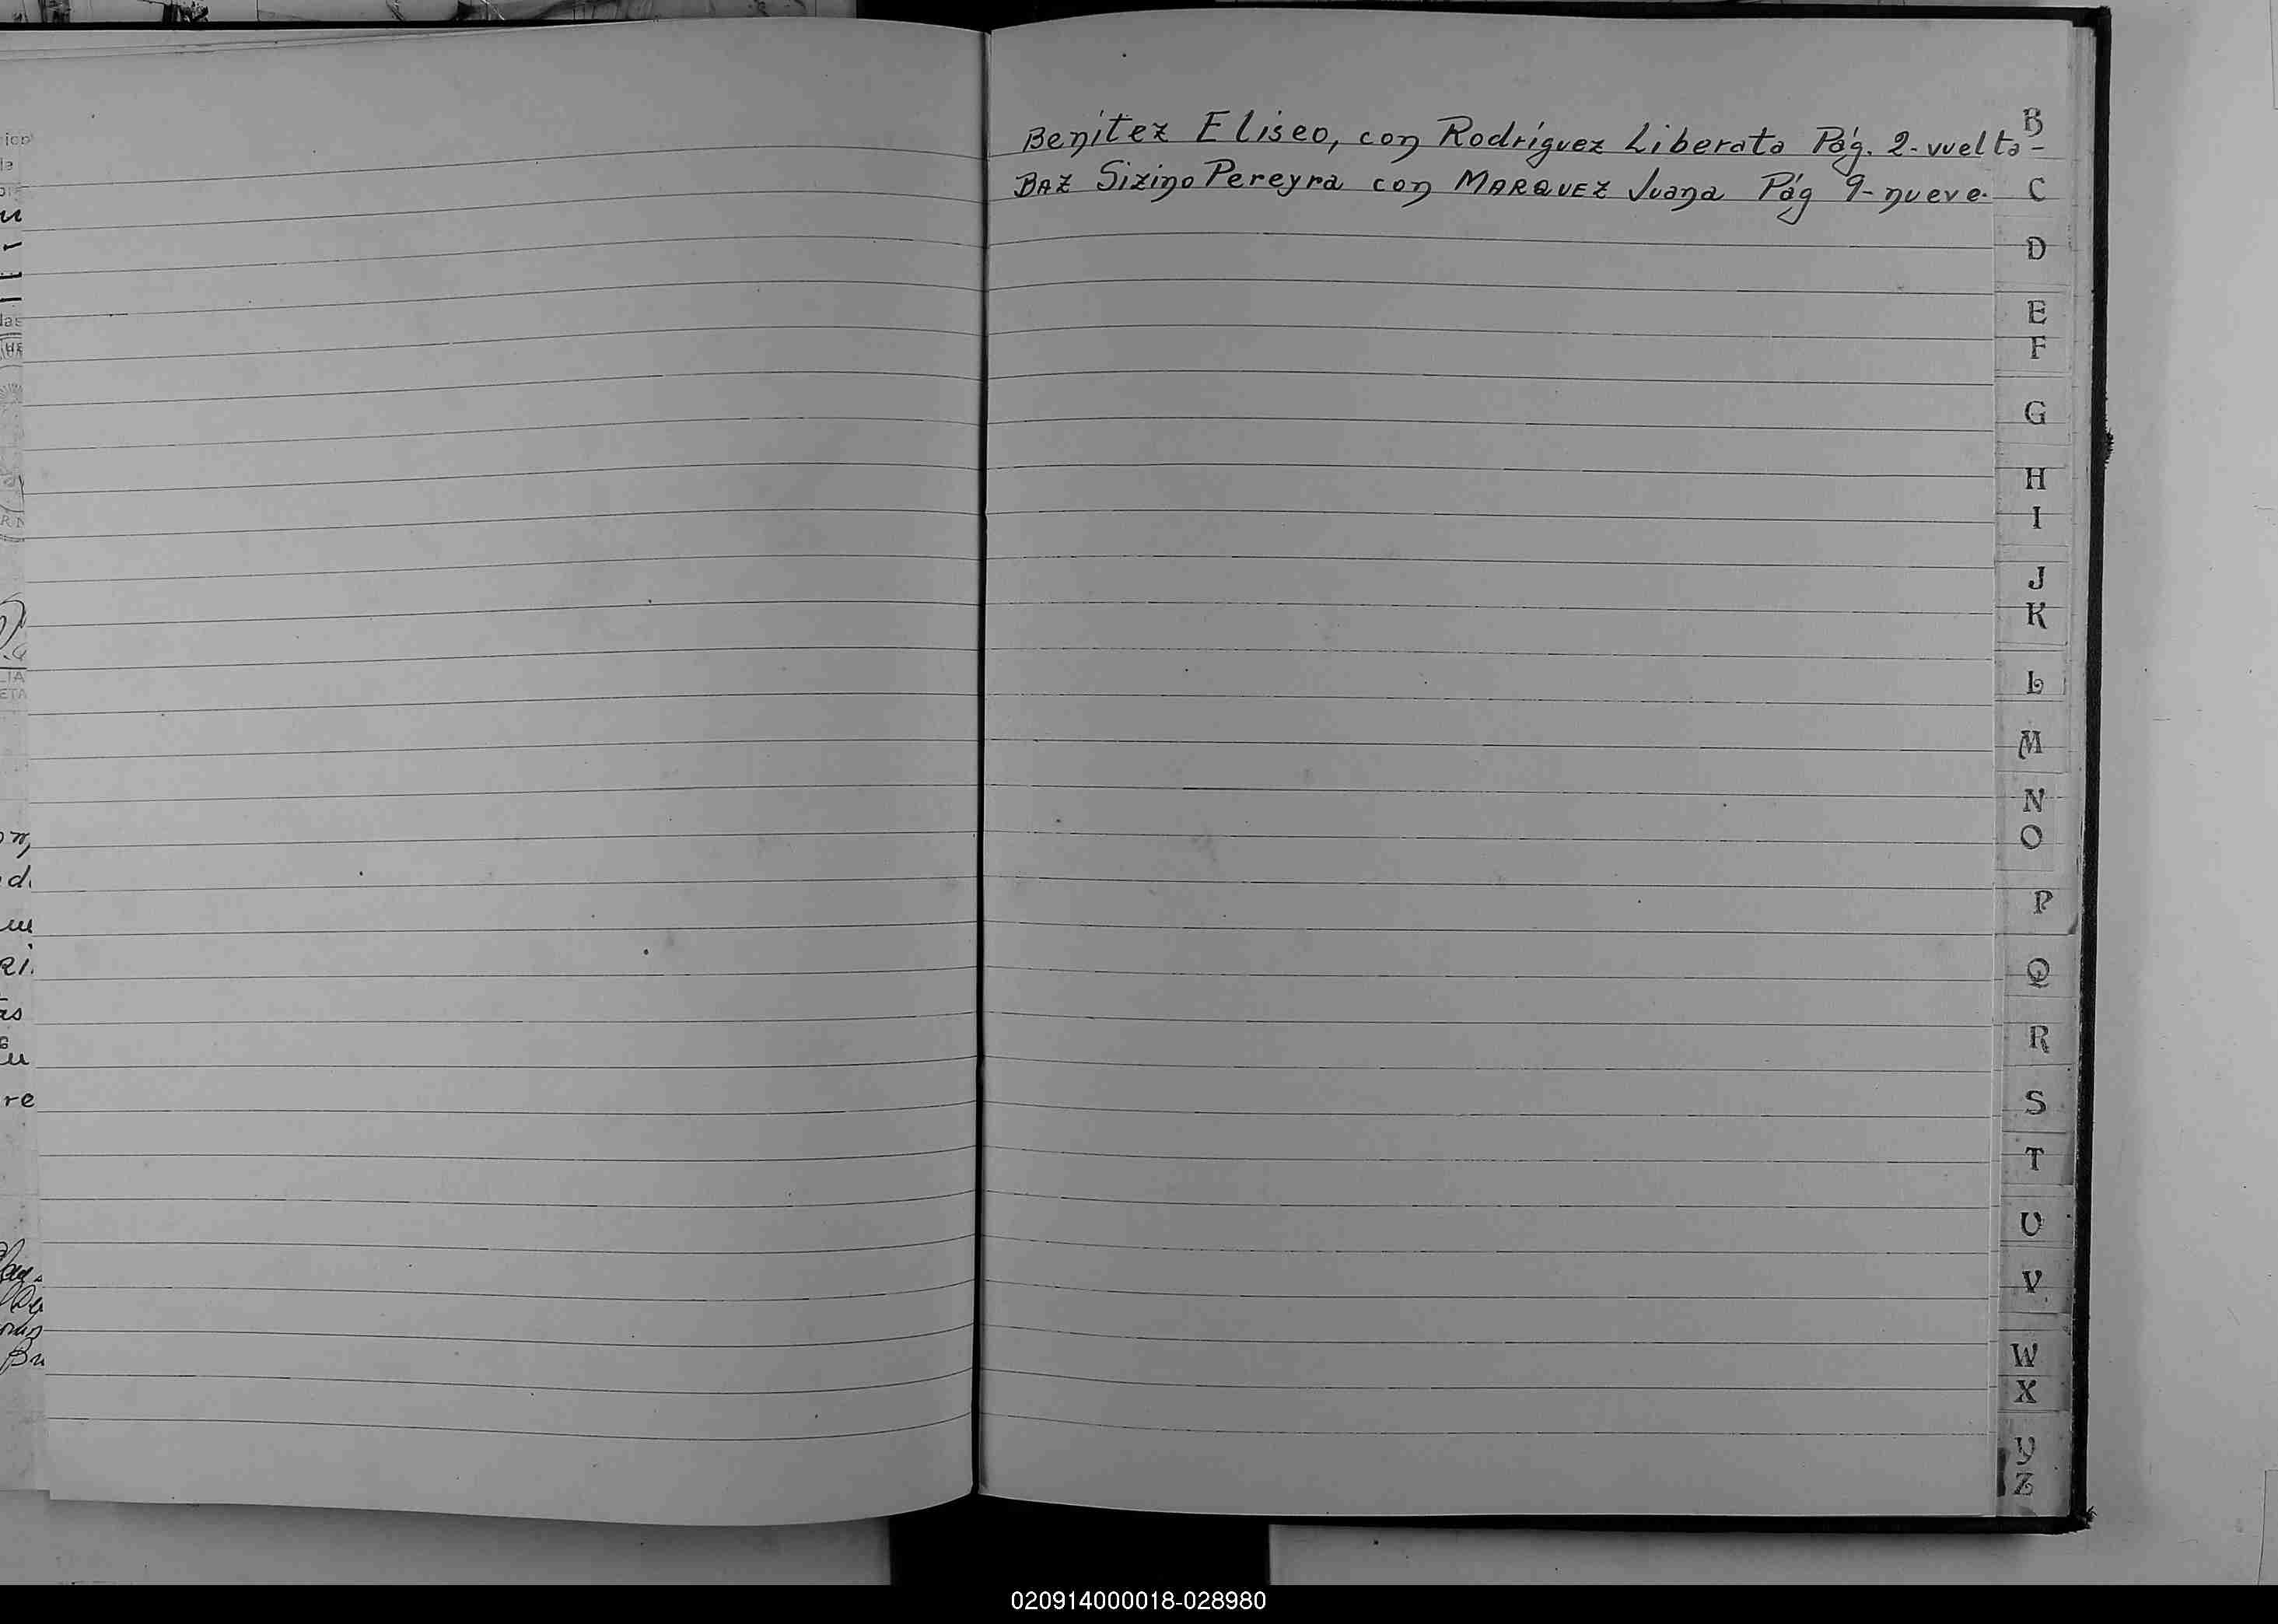 Benítez Eliseo, con Rodríguez Liberata Pág. 2- vuelta-
BAZ Sizino Pereyra con MARQUEZ Juana Pág 9- nueve.
B
C
D
E
F
G
H
I
J
K
L
M
N
O
P
Q
R
S
T
U
V
W
X
Y
Z
re
020914000018-028980